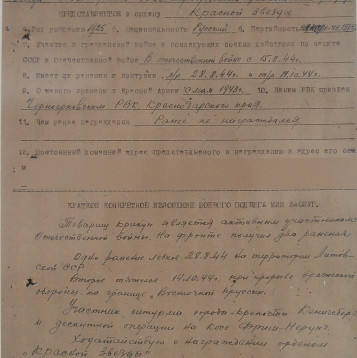 ПРЕДСТАВЛЯЕТСЯ к ордену Красной Звезды
4. Год рождения 1925 5. Национальность Русский 6. Партийность
7. Участие в гражданской войне и последующих боевых действиях по защите
СССР и отечественной войне В отечественной войне с 15.8.44г.
8. Имеет ли ранения и контузии л/р 28.8.44г. и т/р 19.10.44г.
9. С какого времени в Красной Армии 1943г. 10. Каким РВК призван
РВК Краснодарского края
11. Чем ранее награжден Ранее не награждался
12. Постоянный домашний адрес представляемого к награждению и адрес его
КРАТКОЕ КОНКРЕТНОЕ ИЗЛОЖЕНИЕ БОЕВОГО ПОДВИГА ИЛИ ЗАСЛУГ.
Товарищ является активным участником
Отечественной войны. На фронте получил два ранения
Одно ранение легкое 28.8.44 на территории Литов-
ской ССР
Второе тяжелое 19.10.44г. при прорыве вражеской
обороны на границе "Восточной Пруссии.
Участник штурма города-крепости Кенигсберг
и десантной операции на косе Фриш-Нерунг.
Ходатайствую о награждении орденом
"Красной Звезды"